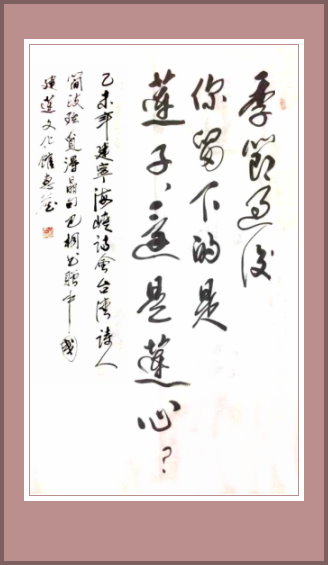 季節過後
你留下的是
蓮子、還是蓮心？
乙未年建寧海峽詩會台灣詩人
簡政珍 得 句 贈中國
建蓮文化館惠存